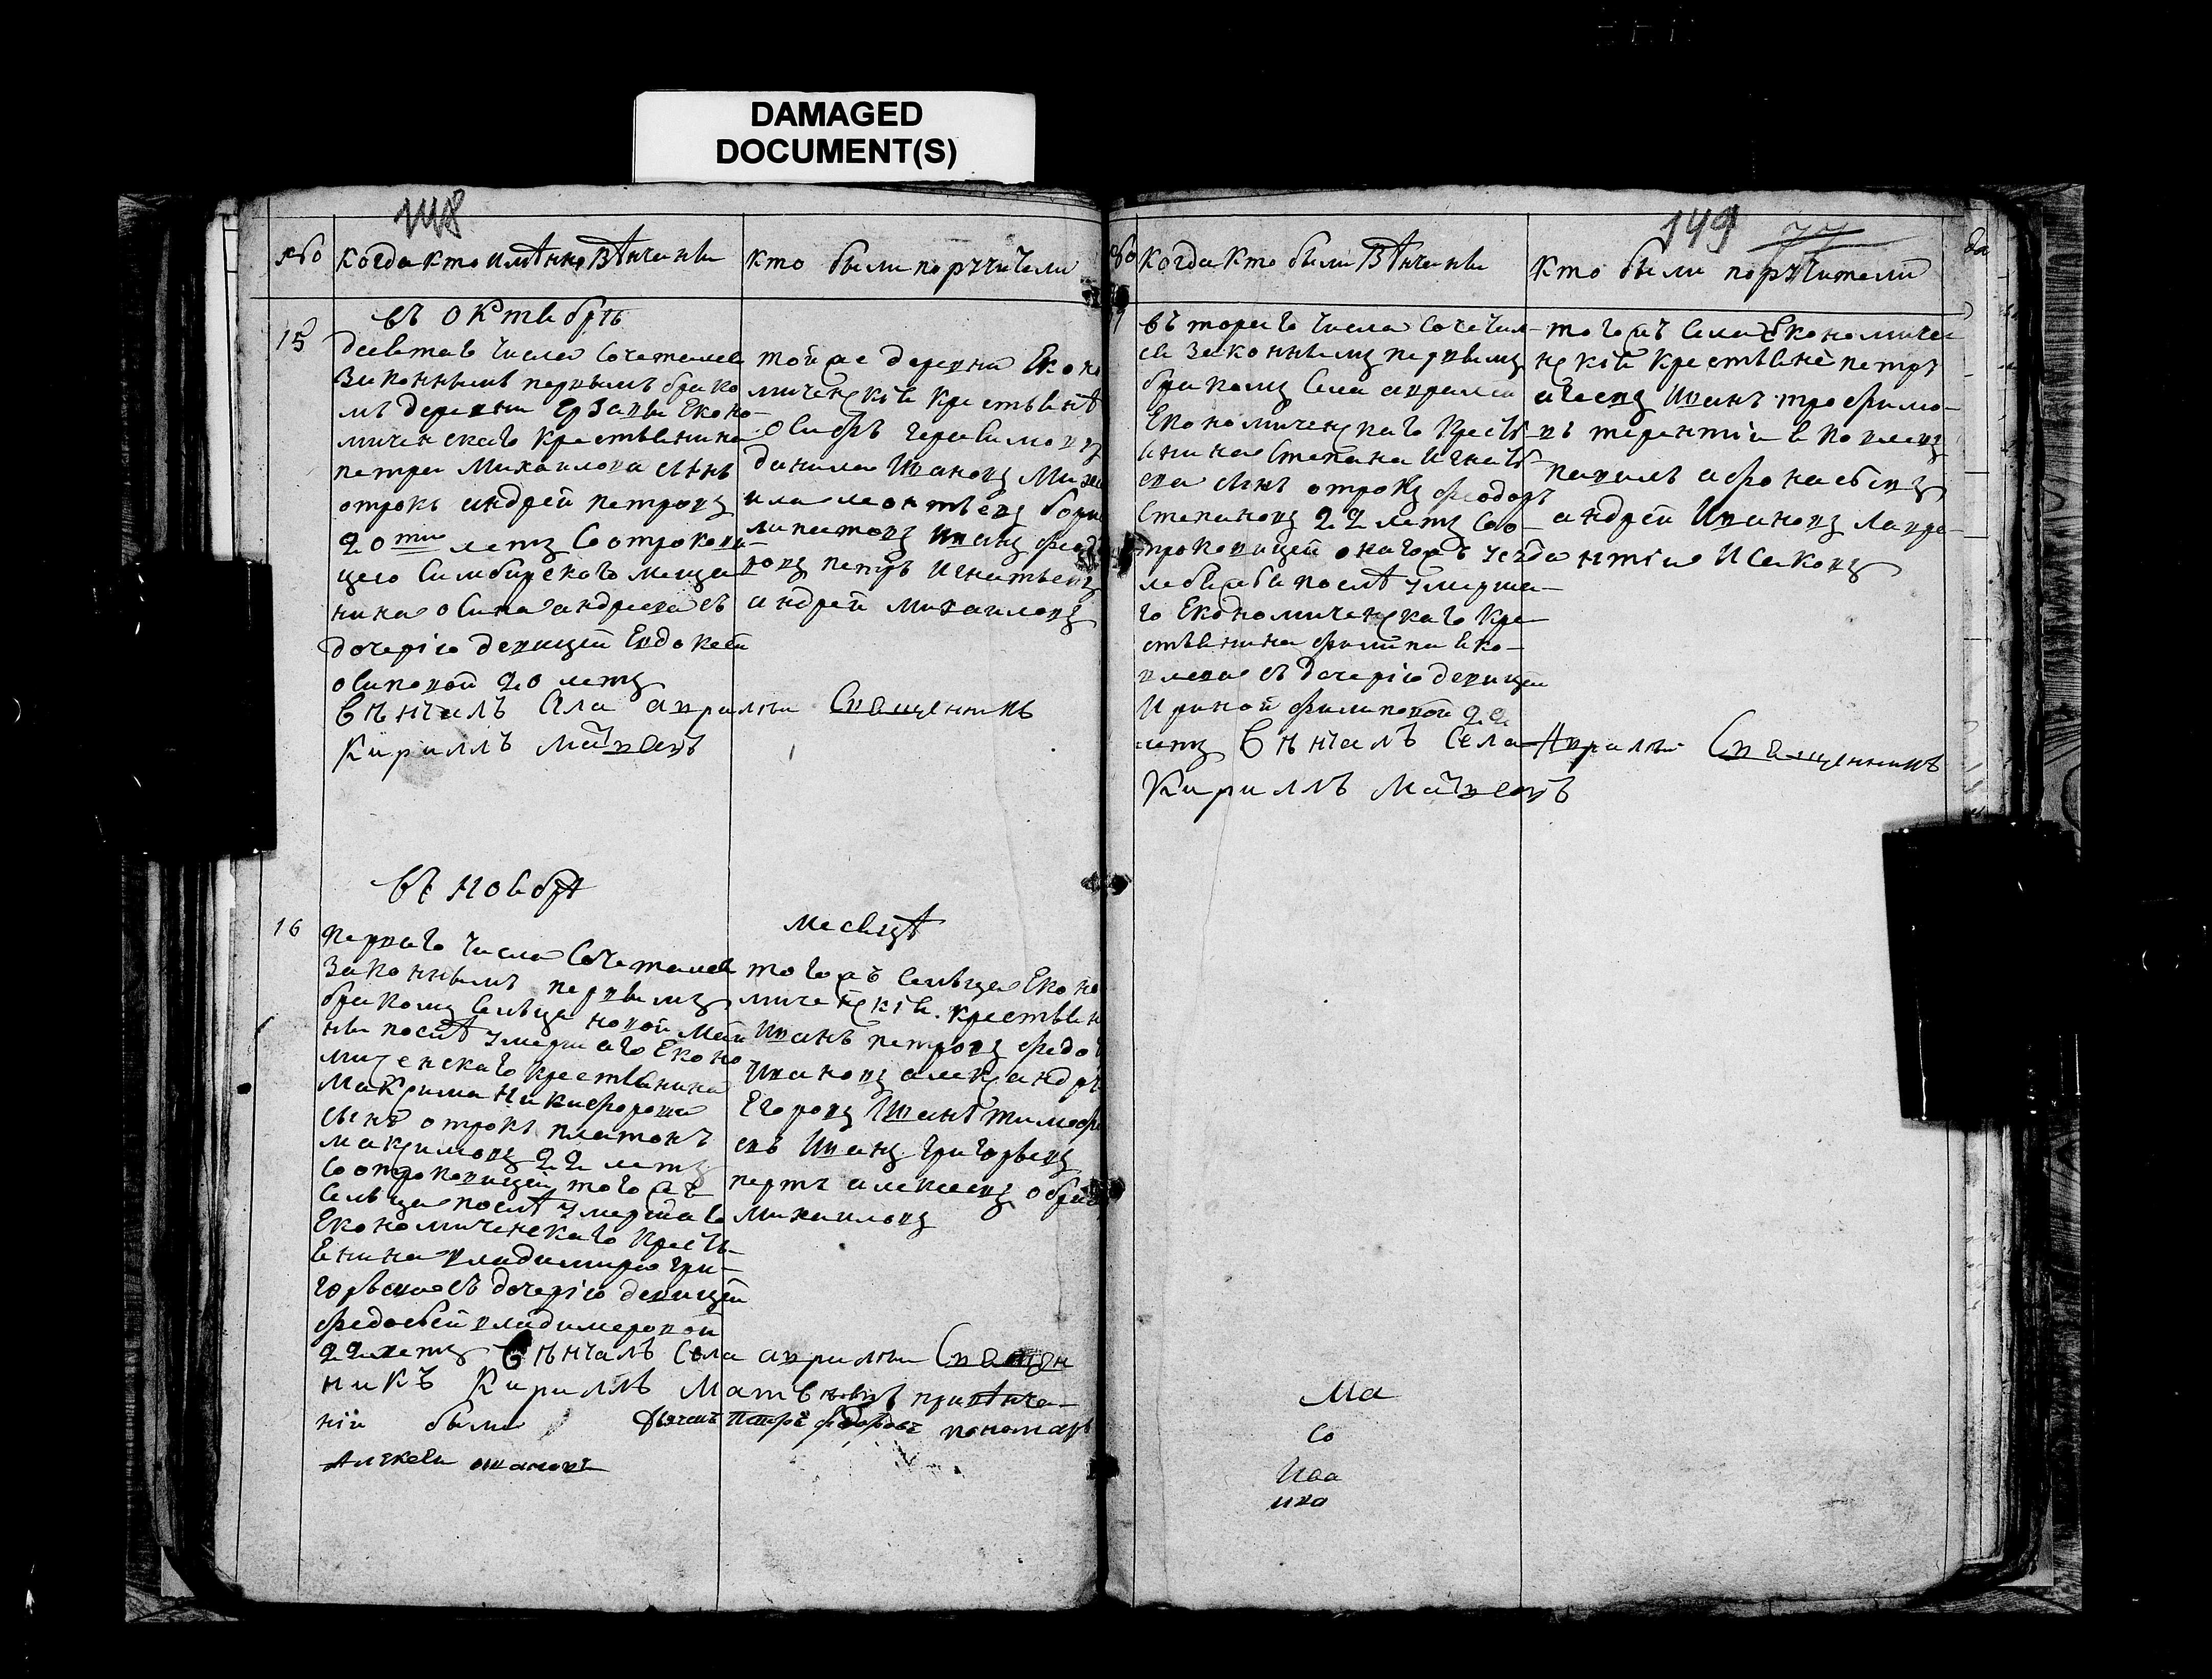 DAMAGED
DOCUMENT(S)
148
Когда кто имѣнно вѣнчаны
кто были поручители
въ октябрѣ
15
девятаго числа сочетался
законнымъ первымъ брако
мъ деревни Ерзовы Еконо-
мическаго крестьянина
петра Михаилова сынъ
отрокъ андрей петровъ
20ти летъ Соотрокови-
цею Симбирскаго меща
нина осипа андреева съ
дочерію девицей Евдокеей
осиповой 20 летъ
Вѣнчалъ Села аврали Священникъ
Кириллъ Матвеевъ
той же деревни Еконо
мическія крестьянѣ
осипъ герасимовъ
данила Ивановъ Миха
ила леонтьевъ бори
ивановъ федо
ровъ петръ Игнатьевъ
андрей михаиловъ
въ ноябрѣ
месяцѣ
16
перваго числа Сочетался
Законнымъ первымъ
бракомъ Сельца новой Май
ны послѣ умершаго Еконо
мическаго крестьянина
Максима Никифорова
сынъ отрокъ платонъ
максимовъ 22 летъ
Соотроковицей того жъ
Сельца послѣ умершаго
Економическаго кресть-
янина владимира гри-
горьева съ дочерію девицей
федосьей владимеровой
22 летъ Вѣнчалъ Села аврали Священ
никъ Кириллъ Матвѣевъ при вѣнча-
ніи были дьячекъ Петръ федоровъ пономарь
Алексей
того жъ Сельца Еконо
мическія крестьян
Иванъ петровъ федо
Ивановъ александръ
Егоровъ Иванъ тимофе
евъ Иванъ григорьевъ
петръ алексеевъ
михаиловъ
149
77
Когда кто были вѣнчаны
кто были поручители
втораго числа Сочетал-
ся Законнымъ первымъ
бракомъ Села аврали
Економическаго кресть-
янина Степана Игнать-
ева сынъ отрокъ феодоръ
Степановъ 22 летъ Соо-
троковицей онагожъ
послѣ умерша-
го Економическаго кре-
стьянина филипа яко-
влева съ дочерію девицей
Ириной филиповой 22
летъ Вѣнчалъ Села Аврали Священникъ
Кириллъ Матвеевъ
тогожъ Села Економиче-
скія Крестьяне петръ
Иванъ трофимо-
въ терентій яковлевъ
павелъ афонасьевъ
андрей Ивановъ лавре-
нтій Исаковъ
Ма
Со